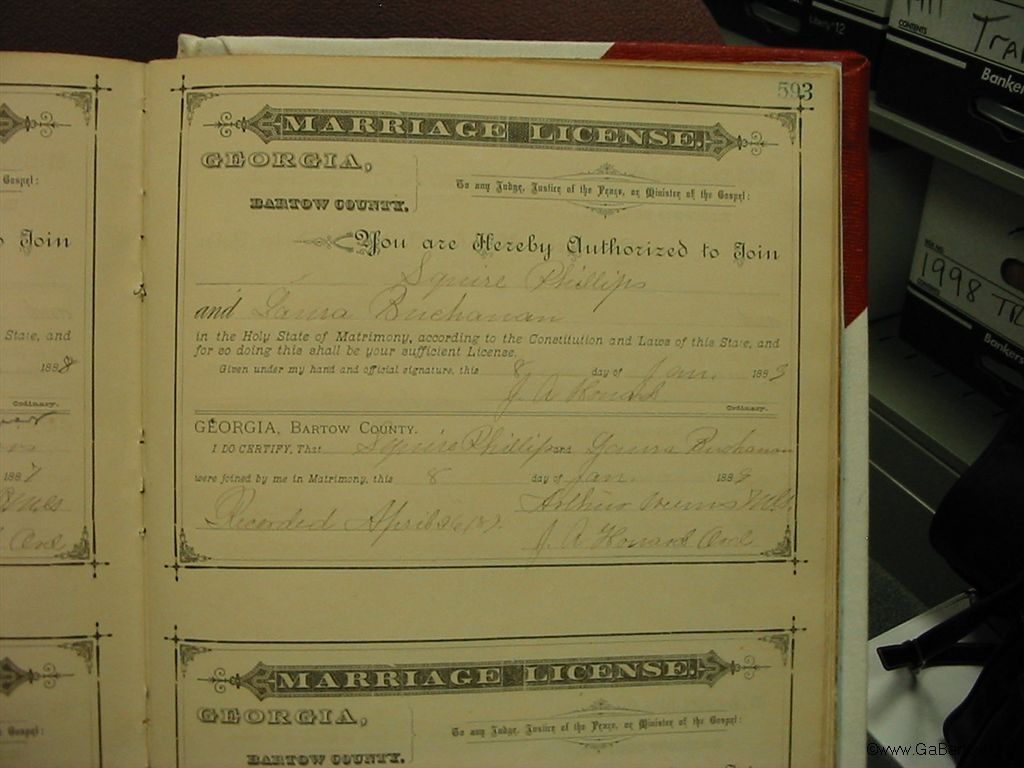 593
MARRIAGE LICENSE.
GEORGIA,
BARTOW COUNTY.
To any Judge, Justice of the Peace, or Minister of the Gospel:
You are Hereby Authorized to Join
Squire Phillips
and Laura Buchanan
in the Holy State of Matrimony, according to the Constitution and Laws of this State, and
for so doing this shall be your sufficient License.
Given under my hand and official signature, this 8 day of Jan. 1889
J. A. Howard
Ordinary.
GEORGIA, BARTOW COUNTY.
I DO CERTIFY, That Squire Phillips and Laura Buchanan
were joined by me in Matrimony, this 8 day of Jan. 1889
Arthur
Recorded April
J. A. Howard Ord.
MARRIAGE LICENSE.
GEORGIA,
To any Judge, Justice of the Peace, or Minister of the Gospel:
BARTOW COUNTY.
Gospel:
Join
State, and
1888
Ordinary.
188
Ord
Gospel:
Liberty 12
CONTENTS
Tra
Banke
1998 TR
Bankers
©www.GaBa